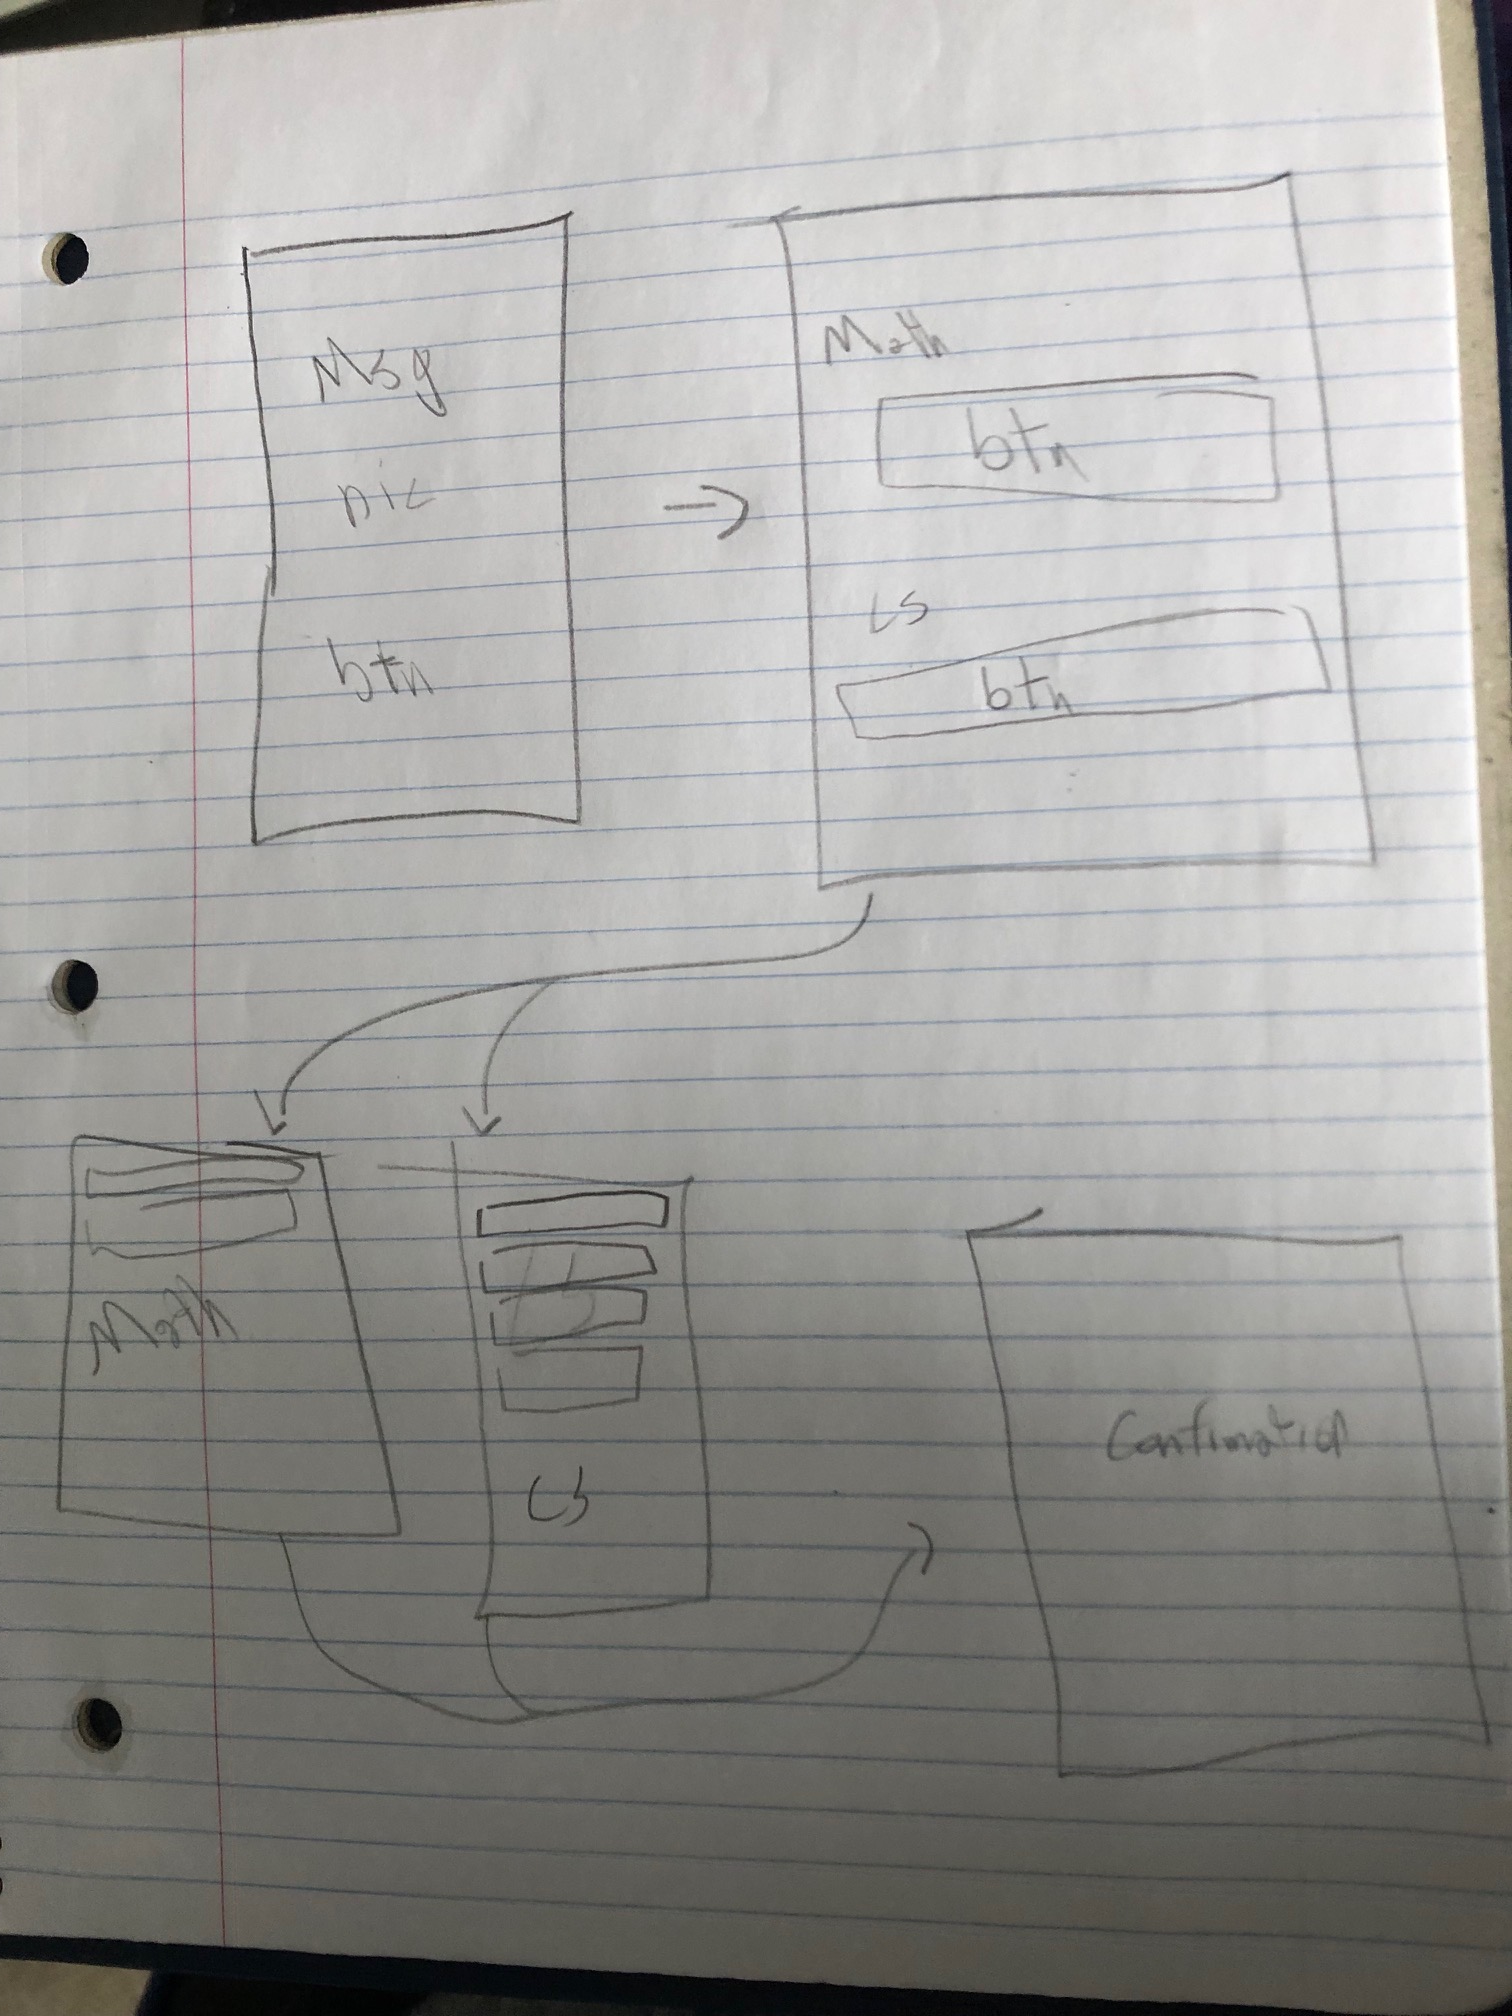 Msg
pic
btn
Math
btn
CS
btn
Math
CS
Confimation